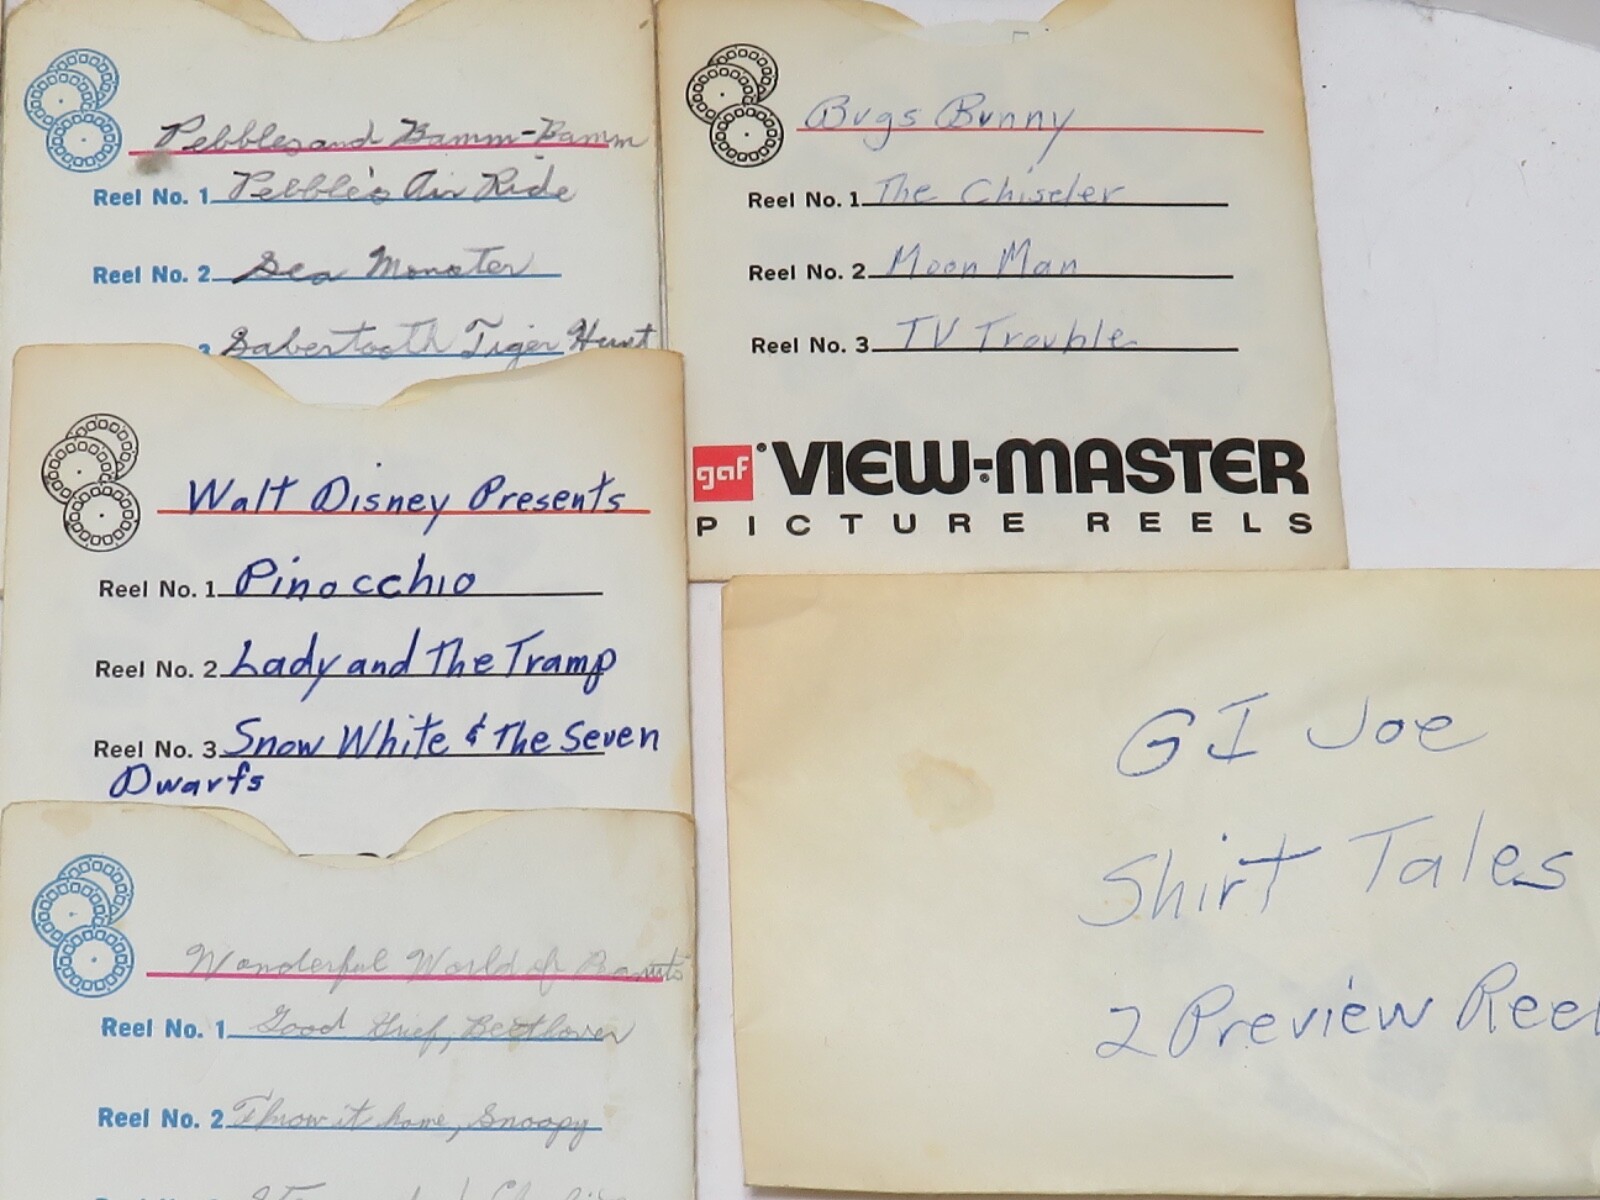 Pebbles and Bamm-Bamm
Reel No. 1 Pebble's Air Ride
Reel No. 2 Sea Monster
3 Sabertooth Tiger Hunt
Bugs Bunny
Reel No. 1 The Chiseler
Reel No. 2 Moon Man
Reel No. 3 TV Trouble
gaf VIEW-MASTER
PICTURE REELS
Walt Disney Presents
Reel No. 1 Pinocchio
Reel No. 2 Lady and The Tramp
Reel No. 3 Snow White & The Seven
Dwarfs
GI Joe
Shirt Tales
2 Preview Reel
Wonderful World of Peanuts
Reel No. 1 Good Grief, Beethoven
Reel No. 2 Throw it home, Snoopy